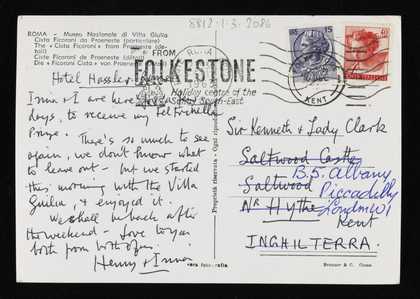 8812·1·3·2086
ROMA - Museo Nazionale di Villa Giulia
Cista Ficoroni da Praeneste (particolare)
The « Cista Ficoroni » from Praeneste (detail)
Ciste Ficoroni de Praeneste (détail)
Die « Ficoroni Cista » von Praeneste
FROM
FOLKESTONE
Holiday centre of the
South-East
KENT
Hotel Hassler, Rome
Irina & I are here for a few
days, to receive my Feltrinelli
Prize. There's so much to see
again, we don't know what
to leave out - but we started
this morning with the Villa
Giulia, & enjoyed it.
We shall be back after
the weekend - Love to you
both from both of us.
Henry & Irina
Proprietà riservata - Ogni
vera fotografia
Sir Kenneth & Lady Clark
Saltwood Castle
B.5. Albany
Saltwood
Piccadilly
Nr Hythe
London W1
Kent
INGHILTERRA.